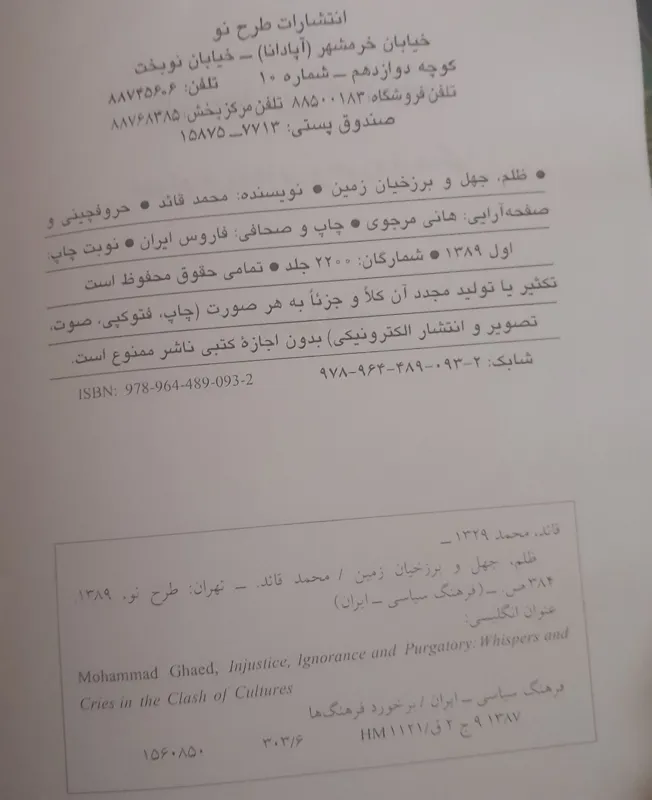 انتشارات طرح نو
خیابان خرمشهر (آپادانا) ــ خیابان نوبخت
کوچه دوازدهم ــ شماره ۱۰ تلفن: ۸۸۷۴۵۶۰۶
تلفن فروشگاه: ۸۸۵۰۰۱۸۳ تلفن مرکز پخش: ۸۸۷۶۸۳۸۵
صندوق پستی: ۷۷۱۳ــ ۱۵۸۷۵
● ظلم، جهل و برزخیان زمین ● نویسنده: محمد قائد ● حروفچینی و
صفحه‌آرایی: هانی مرجوی ● چاپ و صحافی: فاروس ایران ● نوبت چاپ:
اول ۱۳۸۹ ● شمارگان: ۲۲۰۰ جلد ● تمامی حقوق محفوظ است
تکثیر یا تولید مجدد آن کلاً و جزئاً به هر صورت (چاپ، فتوکپی، صوت،
تصویر و انتشار الکترونیکی) بدون اجازهٔ کتبی ناشر ممنوع است.
شابک: ۲-۰۹۳-۴۸۹-۹۶۴-۹۷۸ ISBN: 978-964-489-093-2
قائد، محمد ۱۳۲۹ ــ
ظلم، جهل و برزخیان زمین / محمد قائد. ــ تهران: طرح نو، ۱۳۸۹.
۳۸۴ ص. ــ (فرهنگ سیاسی ــ ایران)
عنوان انگلیسی:
Mohammad Ghaed, Injustice, Ignorance and Purgatory: Whispers and
Cries in the Clash of Cultures
فرهنگ سیاسی ــ ایران / برخورد فرهنگ‌ها
۱۳۸۷ ۹ ج ۲ ق/ HM ۱۱۲۱ ۳۰۳/۶ ۱۵۶۰۸۵۰